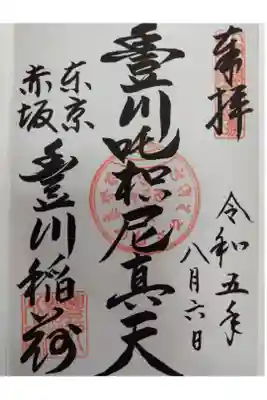 奉拝
令和五年
八月六日
豊川吒枳尼真天
东京
赤坂
豊川稲荷